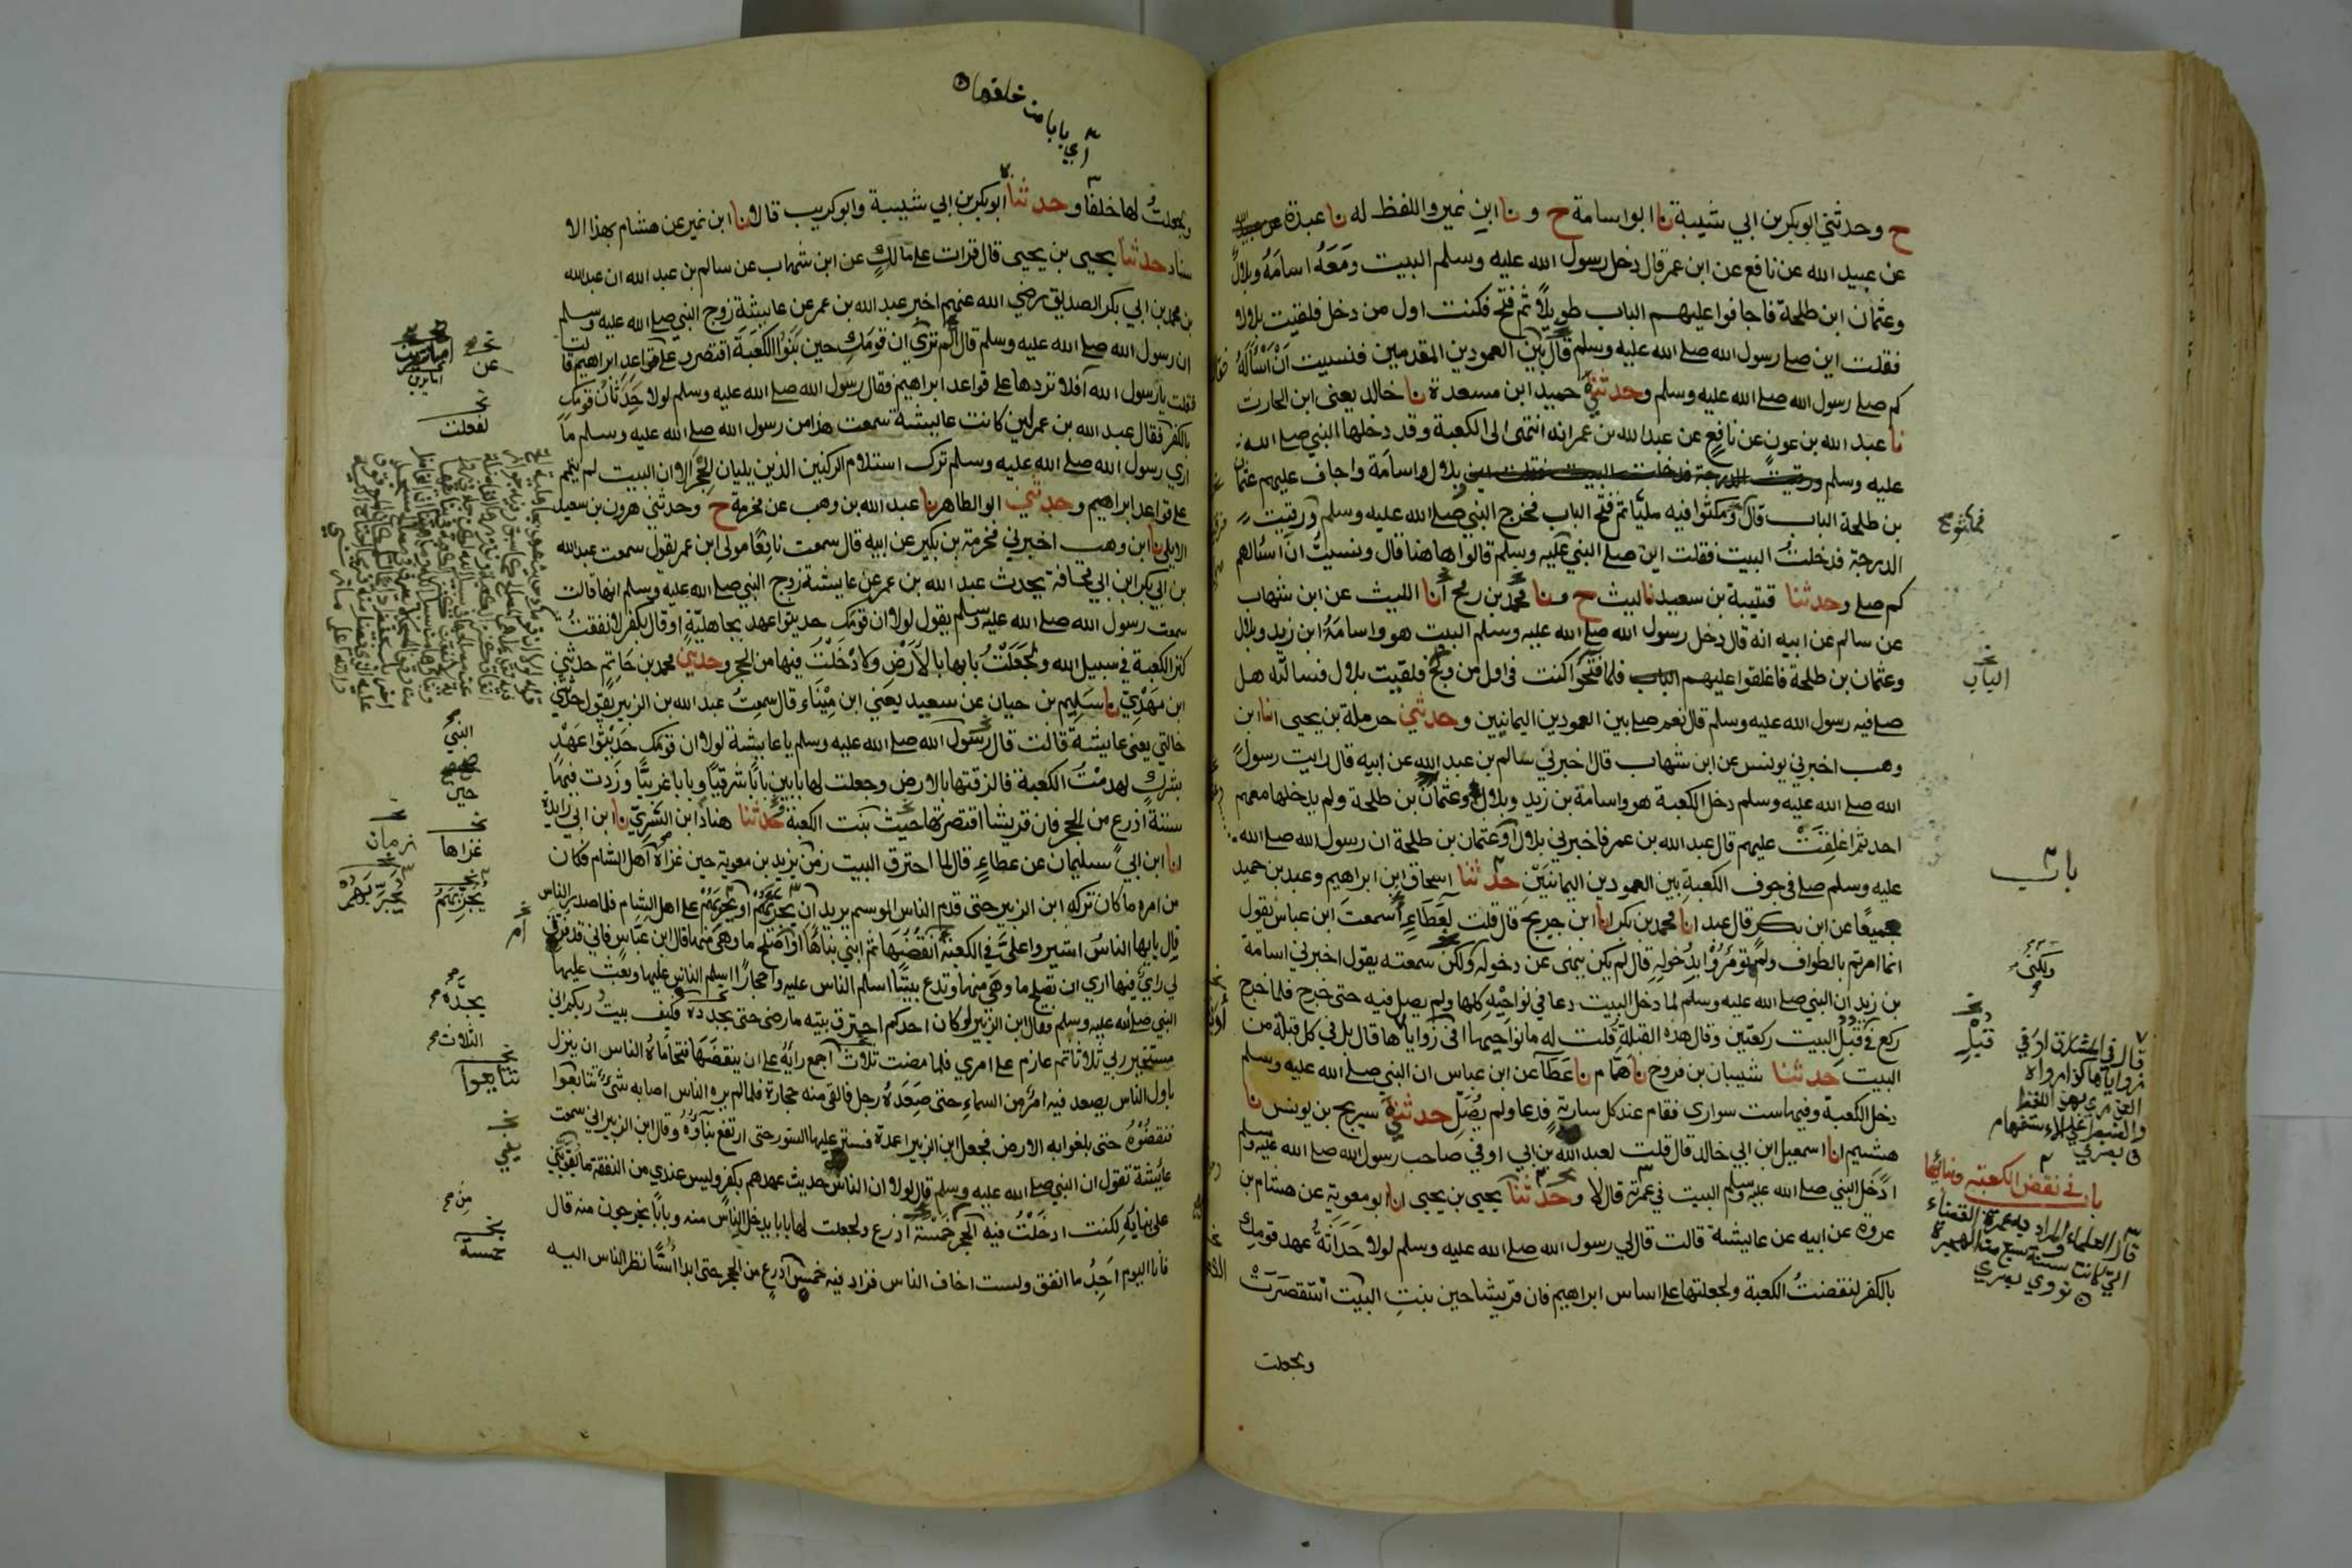 ح وحدثني ابو بكر بن ابي شيبة نا ابو اسامة ح و نا ابن نمير واللفظ له نا عبدة عن عبيد الله
عن عبيد الله عن نافع عن ابن عمر قال دخل رسول الله صلى الله عليه وسلم البيت ومَعَهُ اسامَةُ وبلالٌ
وعثمان ابن طلحة فاجافوا عليهم الباب طويلاً ثم فتح فكنت اول من دخل فلقيت بلالا
فقلت اين صلى رسول الله صلى الله عليه وسلم قال بين العمودين المقدمين فنسيت اَنْ اَسْأَلَهُ
كم صلى رسول الله صلى الله عليه وسلم وحدثني حميد ابن مسعدة نا خالد يعنى ابن الحارث
نا عبد الله بن عون عن نافع عن عبد الله بن عمر انه انتهى الى الكعبة وقد دخلها النبي صلى الله
عليه وسلم ورقيت الدرجة فدخلت البيت فقلت اين بلال واسامة واجاف عليهم عثمان
بن طلحة الباب قال فمكثوا فيه مليًا ثم فتح الباب فخرج النبي صلى الله عليه وسلم ورقيت
الدرجة فدخلتُ البيت فقلت اين صلى النبي عليه وسلم قالوا هاهنا قال ونسيتُ ان اسئالهم
كم صلى وحدثنا قتيبة بن سعيد نا ليث ح ونا محمد بن رمح انا الليث عن ابن شهاب
عن سالم عن ابيه انه قال دخل رسول الله صلى الله عليه وسلم البيت هو واسامةُ ابن زيد وبلال
وعثمان بن طلحة فاغلقوا عليهم الباب فلما فتحوا كنت في اول من ولج فلقيت بلال فسالته هل
صلى فيه رسول الله عليه وسلم قال نعم صلى بين العمودين اليمانيين وحدثني حرملة بن يحيى انا ابن
وهب اخبرني يونس عن ابن شهاب قال اخبرني سالم بن عبد الله عن ابيه قال رايت رسول
الله صلى الله عليه وسلم دخل الكعبة هو واسامة بن زيد وبلال وعثمان بن طلحة ولم يدخلها معهم
احد ثم اغلِقَتْ عليهم قال عبد الله بن عمر فاخبرني بلال او عثمان بن طلحة ان رسول الله صلى الله
عليه وسلم صلى في جوف الكعبة بين العمودين اليمانيَيْن حدثنا اسحاق ابن ابراهيم وعبد بن حميد
جميعًا عن ابن بكر قال عبد انا محمد بن بكر انا ابن جريج قال قلت لِعَطَاءٍ أَسَمعتَ ابن عباس يقول
انما امرتم بالطواف ولم تؤمَرُوْا بِدُخوله قال لم يكن ينهى عن دخوله ولكن سمعته يقول اخبرني اسامة
بن زيد ان النبي صلى الله عليه وسلم لما دخل البيت دعا في نواحيْهِ كلها ولم يصل فيه حتى خرج فلما خرج
ركع في قُبُلِ البيت ركعتين وقال هذه القبلة قلت له ما نواحيها افي زواياها قال بل في كل قبلة من
البيت حدثنا شيبان بن فروخ نا همّام نا عَطَآ عن ابن عباس ان النبي صلى الله عليه وسلم
دخل الكعبة وفيها ست سواري فقام عند كل ساريةٍ فدعا ولم يُصَلِّ حدثني سريج بن يونس نا
هشيم انا اسمعيل ابن ابي خالد قال قلت لعبد الله بن ابي اوفى صاحب رسول الله صلى الله عليه وسلم
ادَخَلَ النبي صلى الله عليه وسلم البيت في عمرته قال لا وحدثنا يحيى بن يحيى انا ابو معوية عن هشام بن
عروة عن ابيه عن عايشة قالت قال لي رسول الله صلى الله عليه وسلم لولا حَدَاثَةُ عهد قومكِ
بالكفر لنقضتُ الكعبة ولجعلتها على اساس ابراهيم فان قريشا حين بنتِ البيت اسْتقصَرَتْ
ولجعلت
فمكثوا
الباب
باب
ولكنّى
قُبْلِ
قال في المشارق او في
زواياها كذا رواه
العذري بهذا اللفظ
باب في نقض الكعبة وبنائها
قال العلماء المراد به عمرة القضاء
التي كانت سنة سبع من الهجرة
نووي بصري
اي بابا من خلفها
ولجعلتُ لها خلفًا وحدثنا ابو بكر بن ابي شيبة وابو كريب قالا نا ابن نمير عن هشام بهذا الا
سناد حدثنا يحيى بن يحيى قال قرات على مالكٍ عن ابن شهاب عن سالم بن عبد الله ان عبد الله
بن محمد بن ابي بكر الصديق رضي الله عنهم اخبر عبد الله بن عمر عن عايشة زوج النبي صلى الله عليه وسلم
ان رسول الله صلى الله عليه وسلم قال الم ترَيْ ان قومَكِ حين بَنَوْا الكَعْبَةَ اقتصرو على قواعد ابراهيم قالت
فقلت يا رسول الله افلا تردها على قواعد ابراهيم فقال رسول الله صلى الله عليه وسلم لولا حِدْثَانُ قومكِ
بالكفر فقال عبد الله بن عمر لئن كانت عايشة سمعت هذا من رسول الله صلى الله عليه وسلم ما
ارى رسول الله صلى الله عليه وسلم ترك استلام الركنين الذين يليان الحِجْرَ الا ان البيت لم يتمم
على قواعد ابراهيم وحدثني ابو الطاهر نا عبد الله بن وهب عن مخرمة ح وحدثني هرون بن سعيد
الايلي نا ابن وهب اخبرني مخرمة بن بكير عن ابيه قال سمعت نافعًا مولى ابن عمر يقول سمعت عبد الله
بن ابي بكر ابن ابي قحافة يحدث عبد الله بن عمر عن عايشة زوج النبي صلى الله عليه وسلم انها قالت
سمعت رسول الله صلى الله عليه وسلم يقول لولا ان قومك حديثوا عهد بجاهليّةٍ او قال بكفر لانفقتُ
كنز الكعبة في سبيل الله ولجَعَلْتُ بابها بالارْضِ ولادْخَلْتُ فيها من الحجر وحدثني محمد بن حَاتِمٍ حدثني
ابن مَهْدِيّ نا سَلِيم بن حيان عن سعيد يعني ابن مِيْنَاء قال سمِعتُ عبد الله بن الزبير يقول حدثتني
خالتي يعني عايشة قالت قال رسول الله صلى الله عليه وسلم يا عايشة لولا ان قومك حَدِيْثُوا عَهْدٍ
بشركٍ لهدمْتُ الكعبة فالزقتها بالارض وجعلت لها بابين بابًا شرقيًا وبابا غربيًّا وزدت فيها
ستةَ اذرعٍ من الحجر فان قريشا اقتصرتها حيث بَنَت الكعبة حدثنا هناد ابن السَّرِيّ نا ابن ابي زايدة
انا ابن ابي سليمان عن عطاءٍ قال لما احترق البيت زمنَ يزيد بن معوية حين غزاهُ اهل الشام فكان
من امره ما كان تركه ابن الزبير حتى قدم الناس الموسم يريد ان يجرّئهم او يحربهم على اهل الشام فلما صدر الناس
قال يا ايها الناسُ اشيروا علىَّ في الكعبة انقُضُهَا ثم ابني بناءَهَا او اصْلِح ما وهَى منها قال ابن عبّاسٍ فاني قد فرق
لي رايٌ فيها ارى ان تصْلِح ما وهَى منها وتدع بيتًا اسلم الناس عليه واحجارًا اسلم الناس عليها وبعث عليها
النبي صلى الله عليه وسلم فقال ابن الزبير لو كان احدكم احترق بيته ما رضى حتى يجدده فكيف بيتُ ربكم اني
مستخير ربي ثلاثا ثم عازم على امري فلما مضت ثلاث اجمع رايَهُ على ان ينقضَهَا فتحاماهُ الناس ان ينزل
باول الناس يصعد فيه امرٌ من السماءِ حتى صَعِدَهُ رجل فالقى منه حجارة فلما لم يره الناس اصابه شئٌ تتابعوا
فنقضُوْهُ حتى بلغوا به الارض فجعل ابن الزبير اعمدة فستر عليها الستور حتى ارتفع بنآؤهُ وقال ابن الزبير اني سمعت
عائِشة تقول ان النبي صلى الله عليه وسلم قال لولا ان الناس حديث عهدهم بكفر وليس عندي من النفقة ما يُقَوِّيْنِي
على بنايِهِ لكنت ادخَلْتُ فيه الحِجْر خمْسَةَ اذرع ولجعلت لها بابا يدخل الناس منه وبابًا يخرجون منه قال
فانا اليوم اَجِدُ ما انفق ولست اخاف الناس فزاد فيه خمس اذرعٍ من الحجر حتى ابدا اُسًّا نظر الناس اليه
عن
لفعلت
النبي
حين
غزاها
زمان
يجدّه
الثلاث
تتابعوا
خمسة